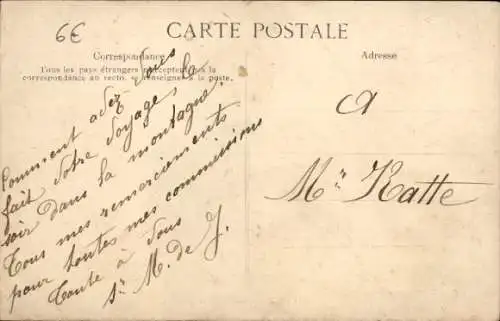 6€
CARTE POSTALE
Correspondance
Tous les pays étrangers n'acceptent pas la
correspondance au recto. se renseigner à la poste.
Adresse
Comment avez-vous
fait votre voyage le
soir dans la montagne.
Tous mes remerciements
pour toutes mes commissions
Toute à vous
M. de J.
à
Mr Katte